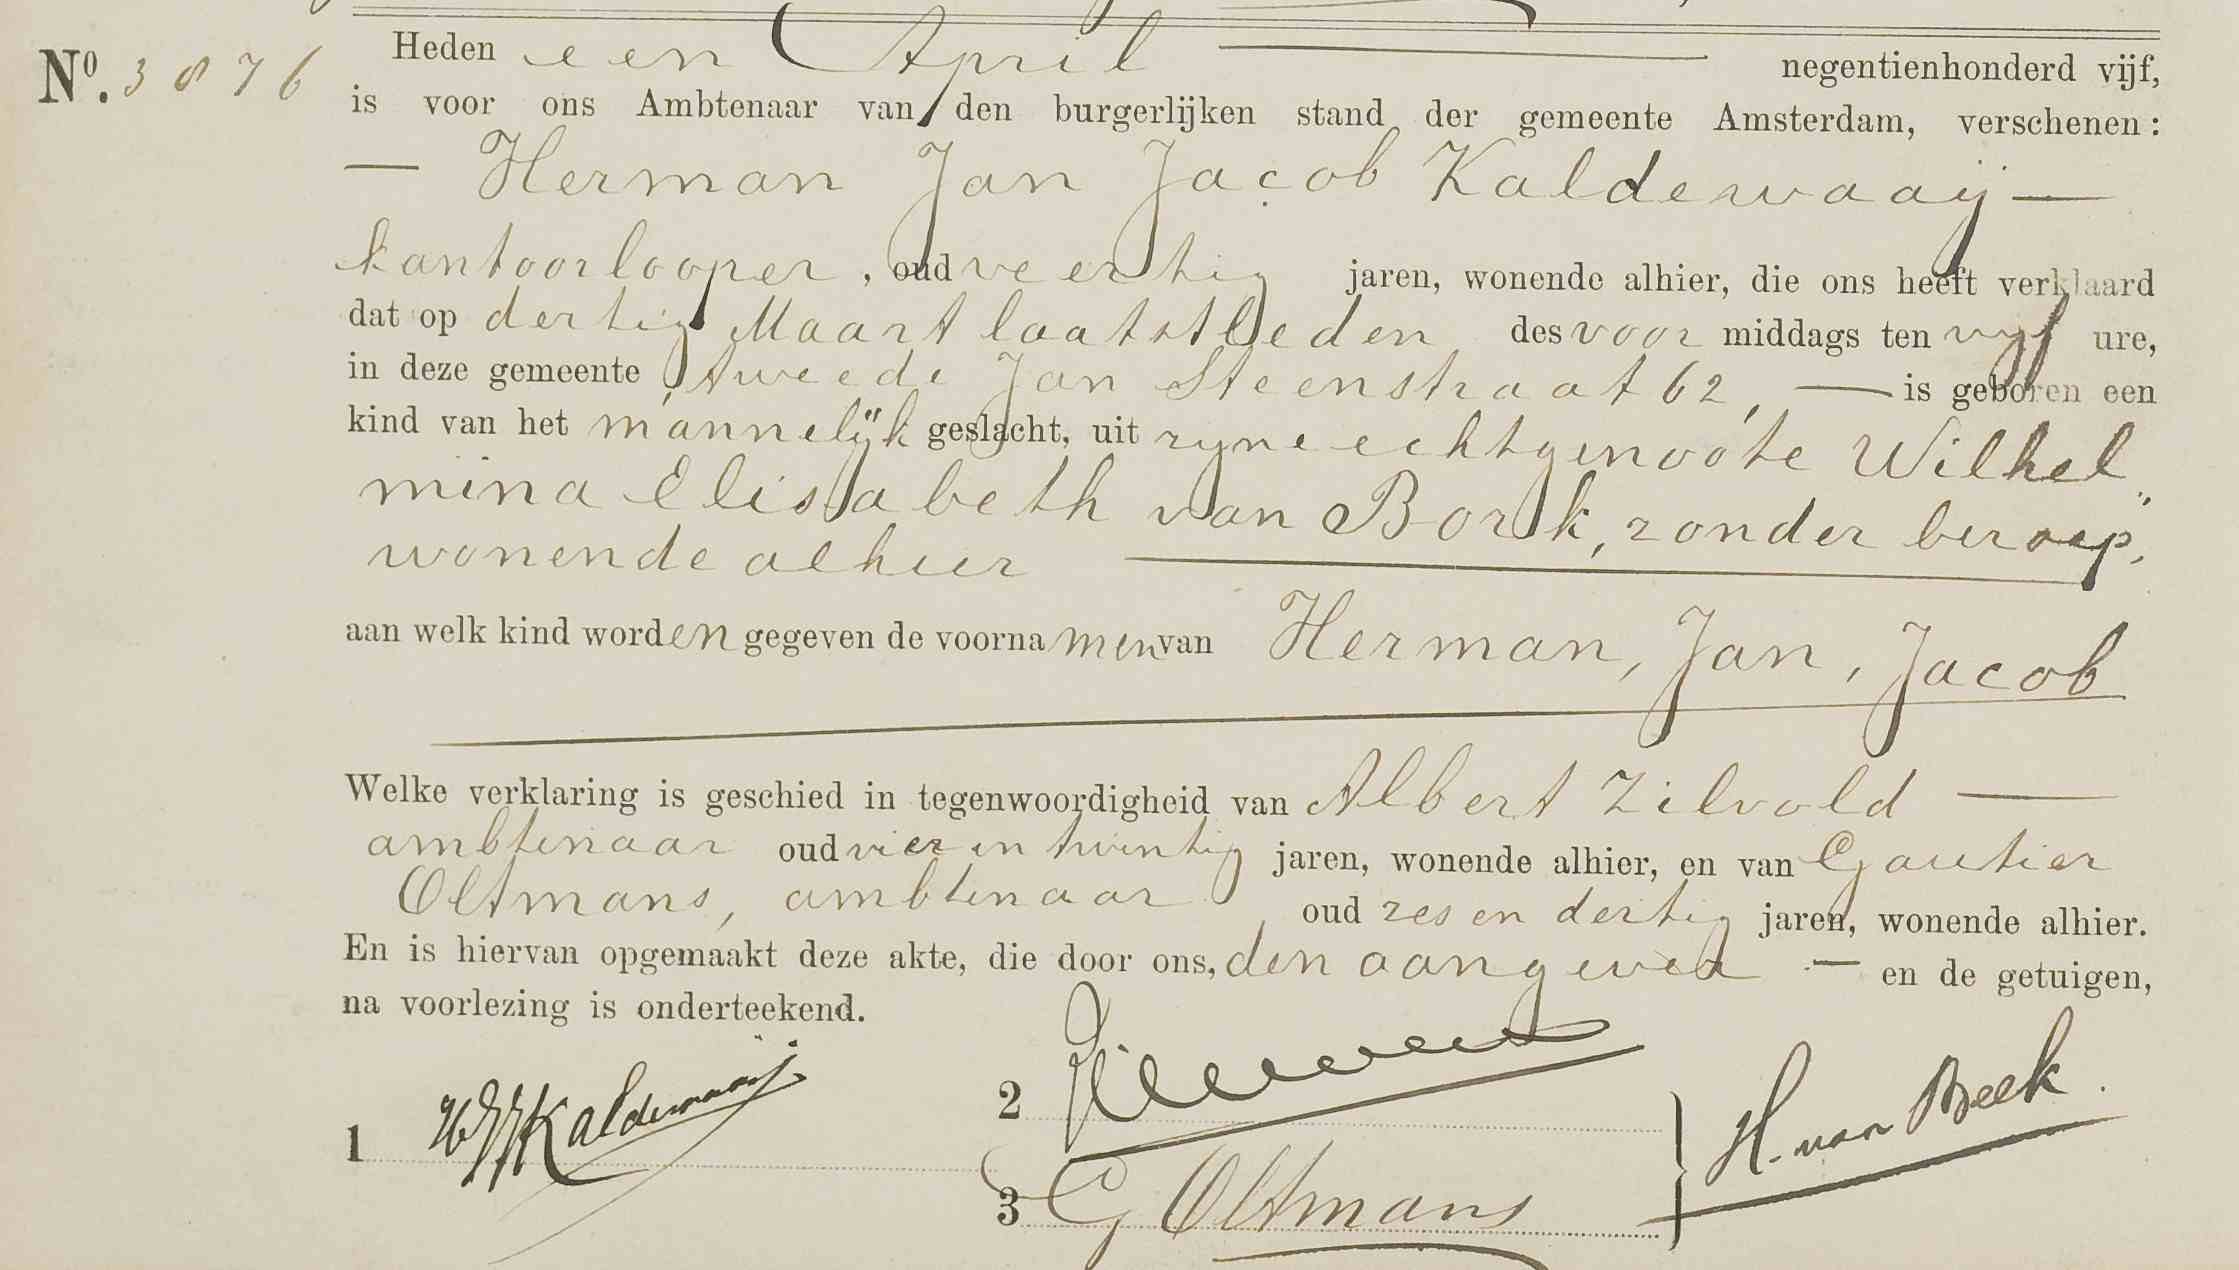 Nº. 3876 Heden een April negentienhonderd vijf,
is voor ons Ambtenaar van den burgerlijken stand der gemeente Amsterdam, verschenen:
— Herman Jan Jacob Kaldewaaij —
kantoorlooper, oud veertig jaren, wonende alhier, die ons heeft verklaard
dat op dertig Maart laatstleden des voor middags ten vijf ure,
in deze gemeente, tweede Jan Steenstraat 62, — is geboren een
kind van het mannelijk geslacht, uit zijne echtgenoote Wilhel„
mina Elisabeth van Bork, zonder beroep,
wonende alhier
aan welk kind worden gegeven de voornamen van Herman, Jan, Jacob
Welke verklaring is geschied in tegenwoordigheid van Albert Zilvold —
ambtenaar oud vier en twintig jaren, wonende alhier, en van Gautier
Oltmans, ambtenaar, oud zes en dertig jaren, wonende alhier.
En is hiervan opgemaakt deze akte, die door ons, den aangever — en de getuigen,
na voorlezing is onderteekend.
1 HJJKaldewaaij
2
3 G Oltmans
H. van Beek.